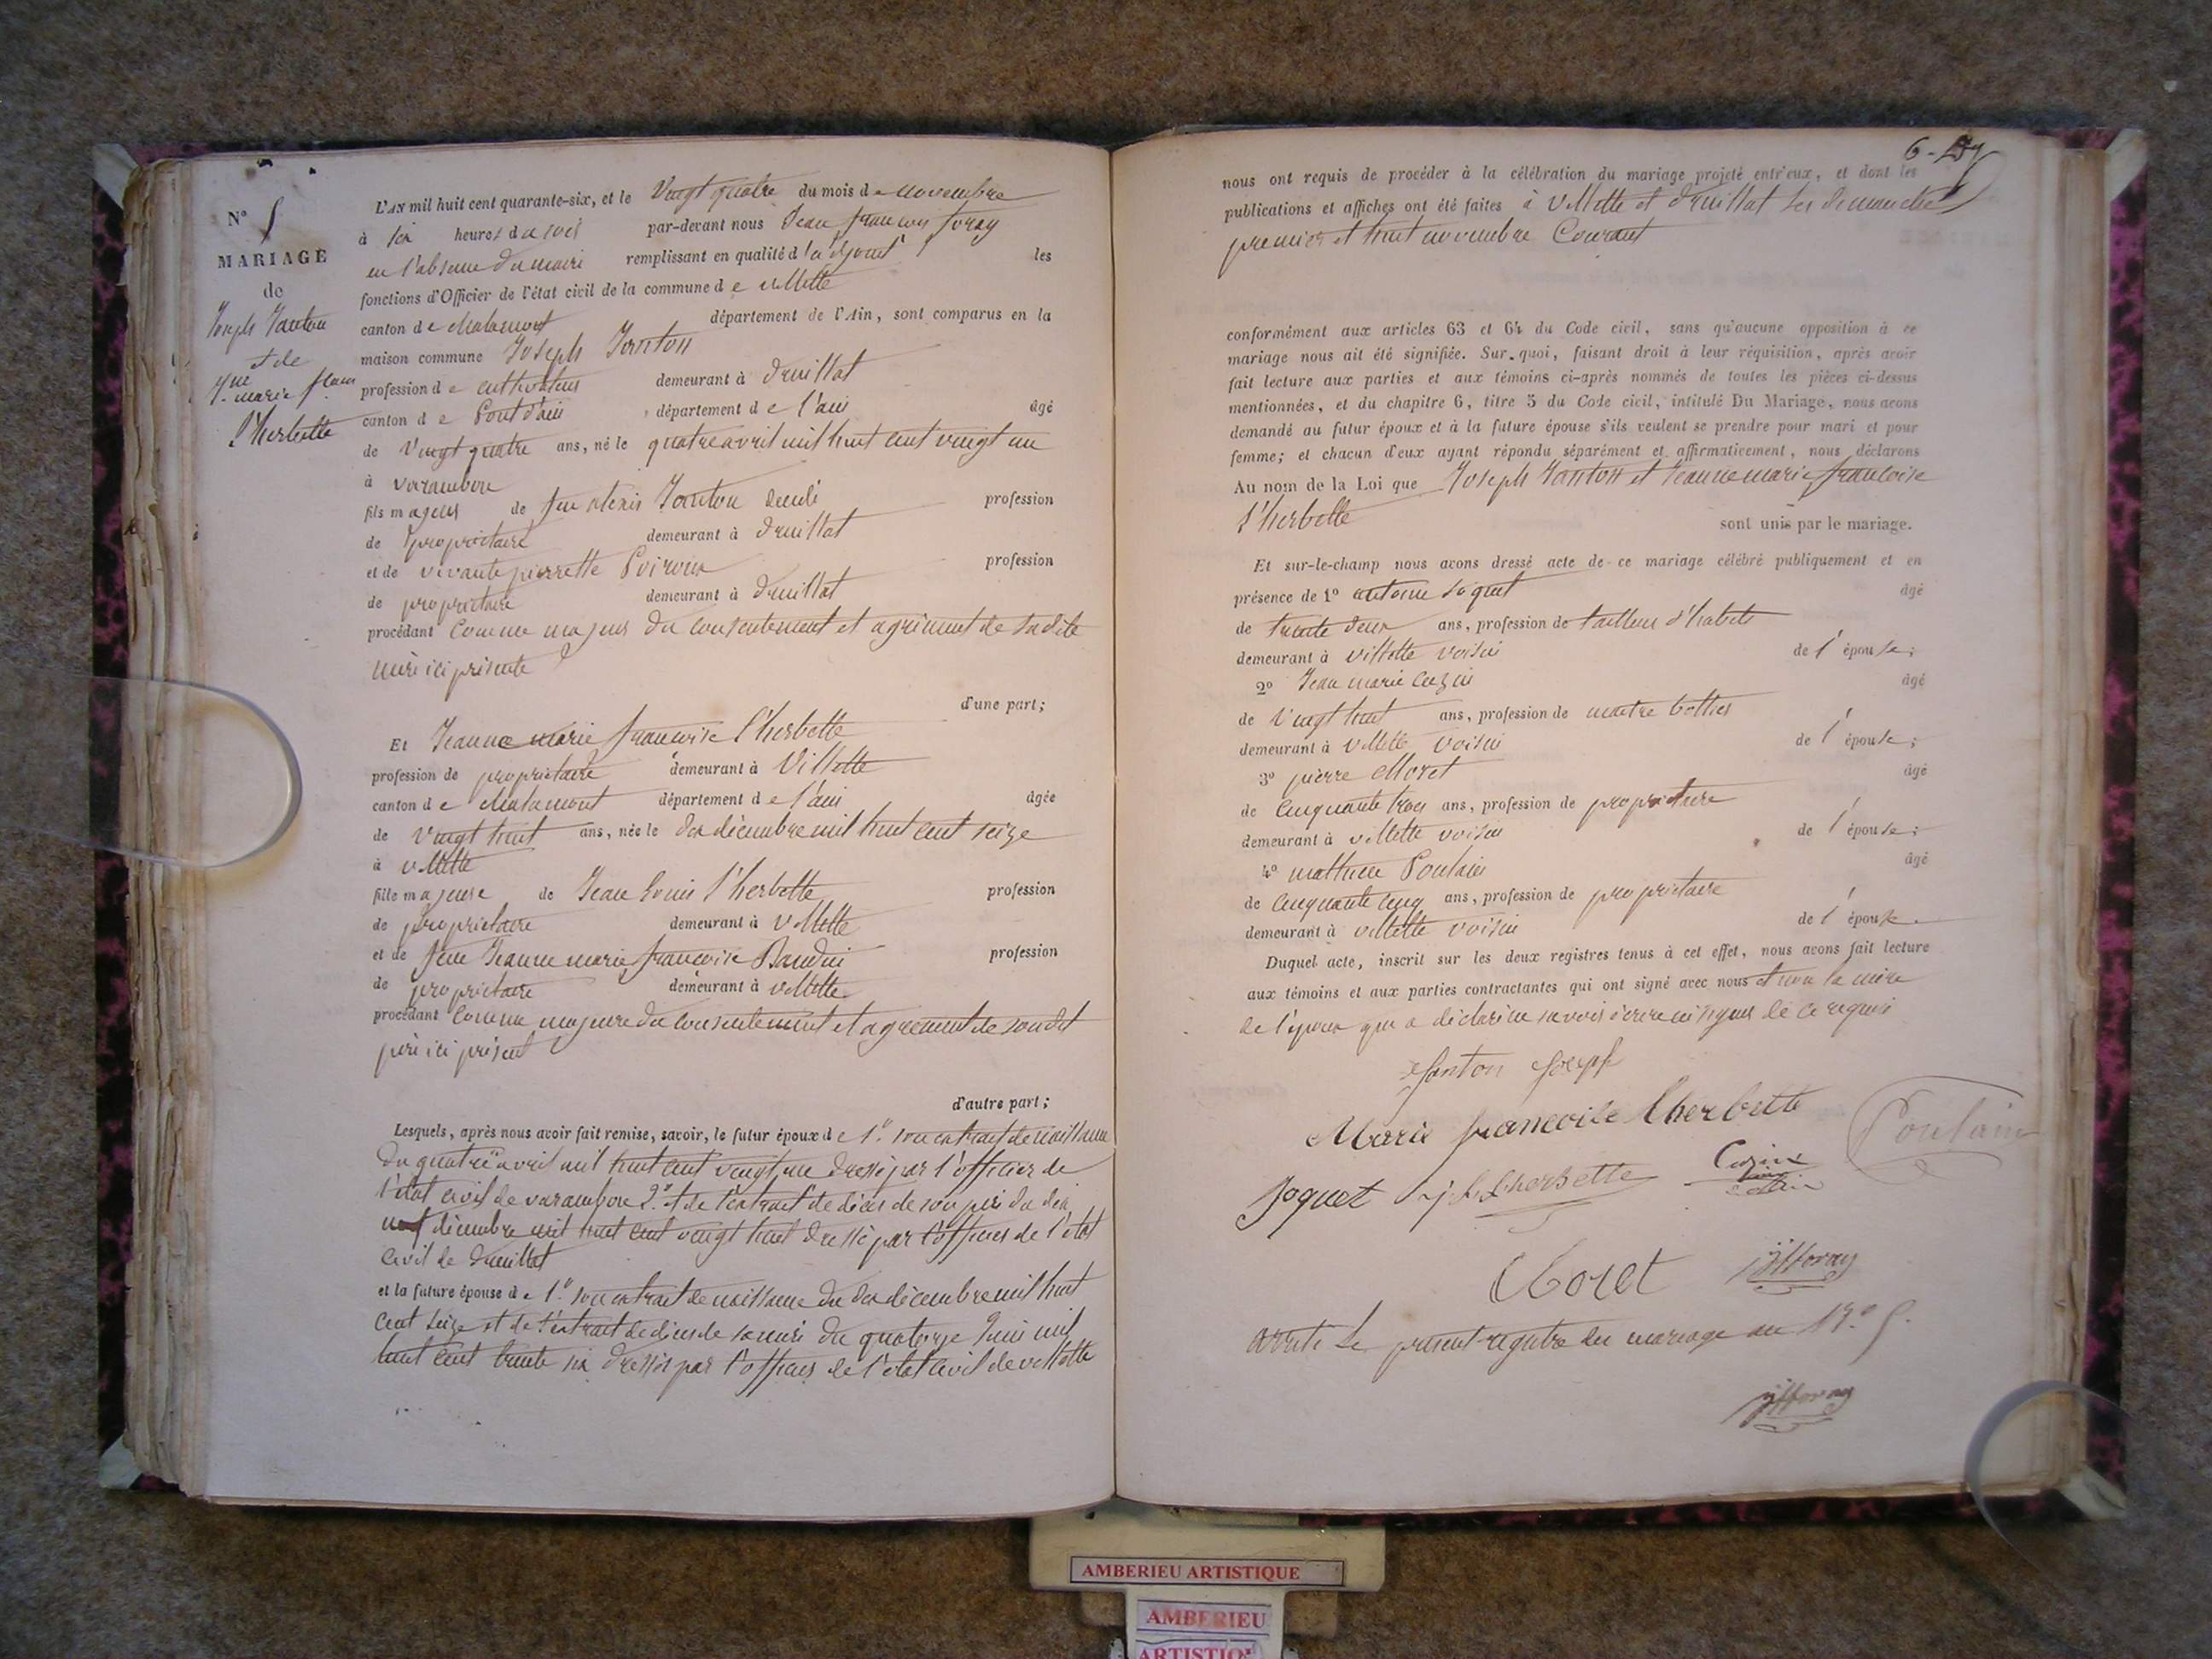 N° 5
MARIAGE
de
Joseph Janton
et de
Jne marie fcoise
l'herbette
L'AN mil huit cent quarante-six, et le Vingt quatre du mois de novembre
à six heures du soir par-devant nous Jean françois foray
en l'absence du maire remplissant en qualité d'adjoint les
fonctions d'Officier de l'état civil de la commune de villette
canton de chalamont département de l'Ain, sont comparus en la
maison commune Joseph Janton
profession de cultivateur demeurant à druillat
canton de Pont d'ain département de l'ain âgé
de Vingt quatre ans, né le quatre avril mil huit cent vingt un
à varambon
fils majeur de feu Janton profession
de propriétaire demeurant à druillat
et de vivante pierrette Poirvin profession
de propriétaire demeurant à druillat
procédant Comme majeur du consentement et agrément de sadite
mère ici présente
d'une part;
Et Jeanne marie françoise l'herbette
profession de propriétaire demeurant à Villette
canton de chalamont département de l'ain âgée
de vingt huit ans, née le dix décembre mil huit cent seize
à villette
fille majeure de Jean Louis l'herbette profession
de propriétaire demeurant à villette
et de feue Jeanne marie françoise Baudin profession
de propriétaire demeurant à villette
procédant Comme majeure du consentement et agrément de son dit
père ici présent
d'autre part;
Lesquels, après nous avoir fait remise, savoir, le futur époux de 1° son extrait de naissance
du quatre avril mil huit cent vingt un dressé par l'officier de
l'état civil de varambon 2° et de l'extrait de décès de son père du dix
neuf décembre mil huit cent vingt huit dressé par l'officier de l'état
civil de druillat
et la future épouse de 1° son extrait de naissance du dix décembre mil huit
cent seize et de l'extrait de décès de sa mère du quatorze Juin mil
huit cent trente six dressés par l'officier de l'état civil de villette
nous ont requis de procéder à la célébration du mariage projeté entr'eux, et dont les
publications et affiches ont été faites à villette et druillat les dimanches
premier et huit novembre Courant
conformément aux articles 63 et 64 du Code civil, sans qu'aucune opposition à ce
mariage nous ait été signifiée. Sur quoi, faisant droit à leur réquisition, après avoir
fait lecture aux parties et aux témoins ci-après nommés de toutes les pièces ci-dessus
mentionnées, et du chapitre 6, titre 5 du Code civil, intitulé Du Mariage, nous avons
demandé au futur époux et à la future épouse s'ils veulent se prendre pour mari et pour
femme; et chacun d'eux ayant répondu séparément et affirmativement, nous déclarons
Au nom de la Loi que Joseph Janton et Jeanne marie françoise
l'herbette sont unis par le mariage.
Et sur-le-champ nous avons dressé acte de ce mariage célébré publiquement et en
présence de 1° antoine Joguet âgé
de trente deux ans, profession de tailleur d'habits
demeurant à villette voisin de l'épouse;
2° Jean marie Cuzin âgé
de vingt huit ans, profession de maitre bottier
demeurant à villette voisin de l'épouse;
3° pierre Moret âgé
de Cinquante trois ans, profession de propriétaire
demeurant à villette voisin de l'épouse;
4° mathieu Poulain âgé
de Cinquante cinq ans, profession de propriétaire
demeurant à villette voisin de l'épouse.
Duquel acte, inscrit sur les deux registres tenus à cet effet, nous avons fait lecture
aux témoins et aux parties contractantes qui ont signé avec nous et non la mère
de l'époux qui a déclaré ne savoir écrire ni signer de ce requise
Janton Josepf
Marie francoise lherbette
Poulain
Joguet j L Lherbette Cuzin
Moret jfforay
arrêté le présent registre des mariage au N° 5.
jfforay
AMBERIEU ARTISTIQUE
AMBERIEU
ARTISTIQUE